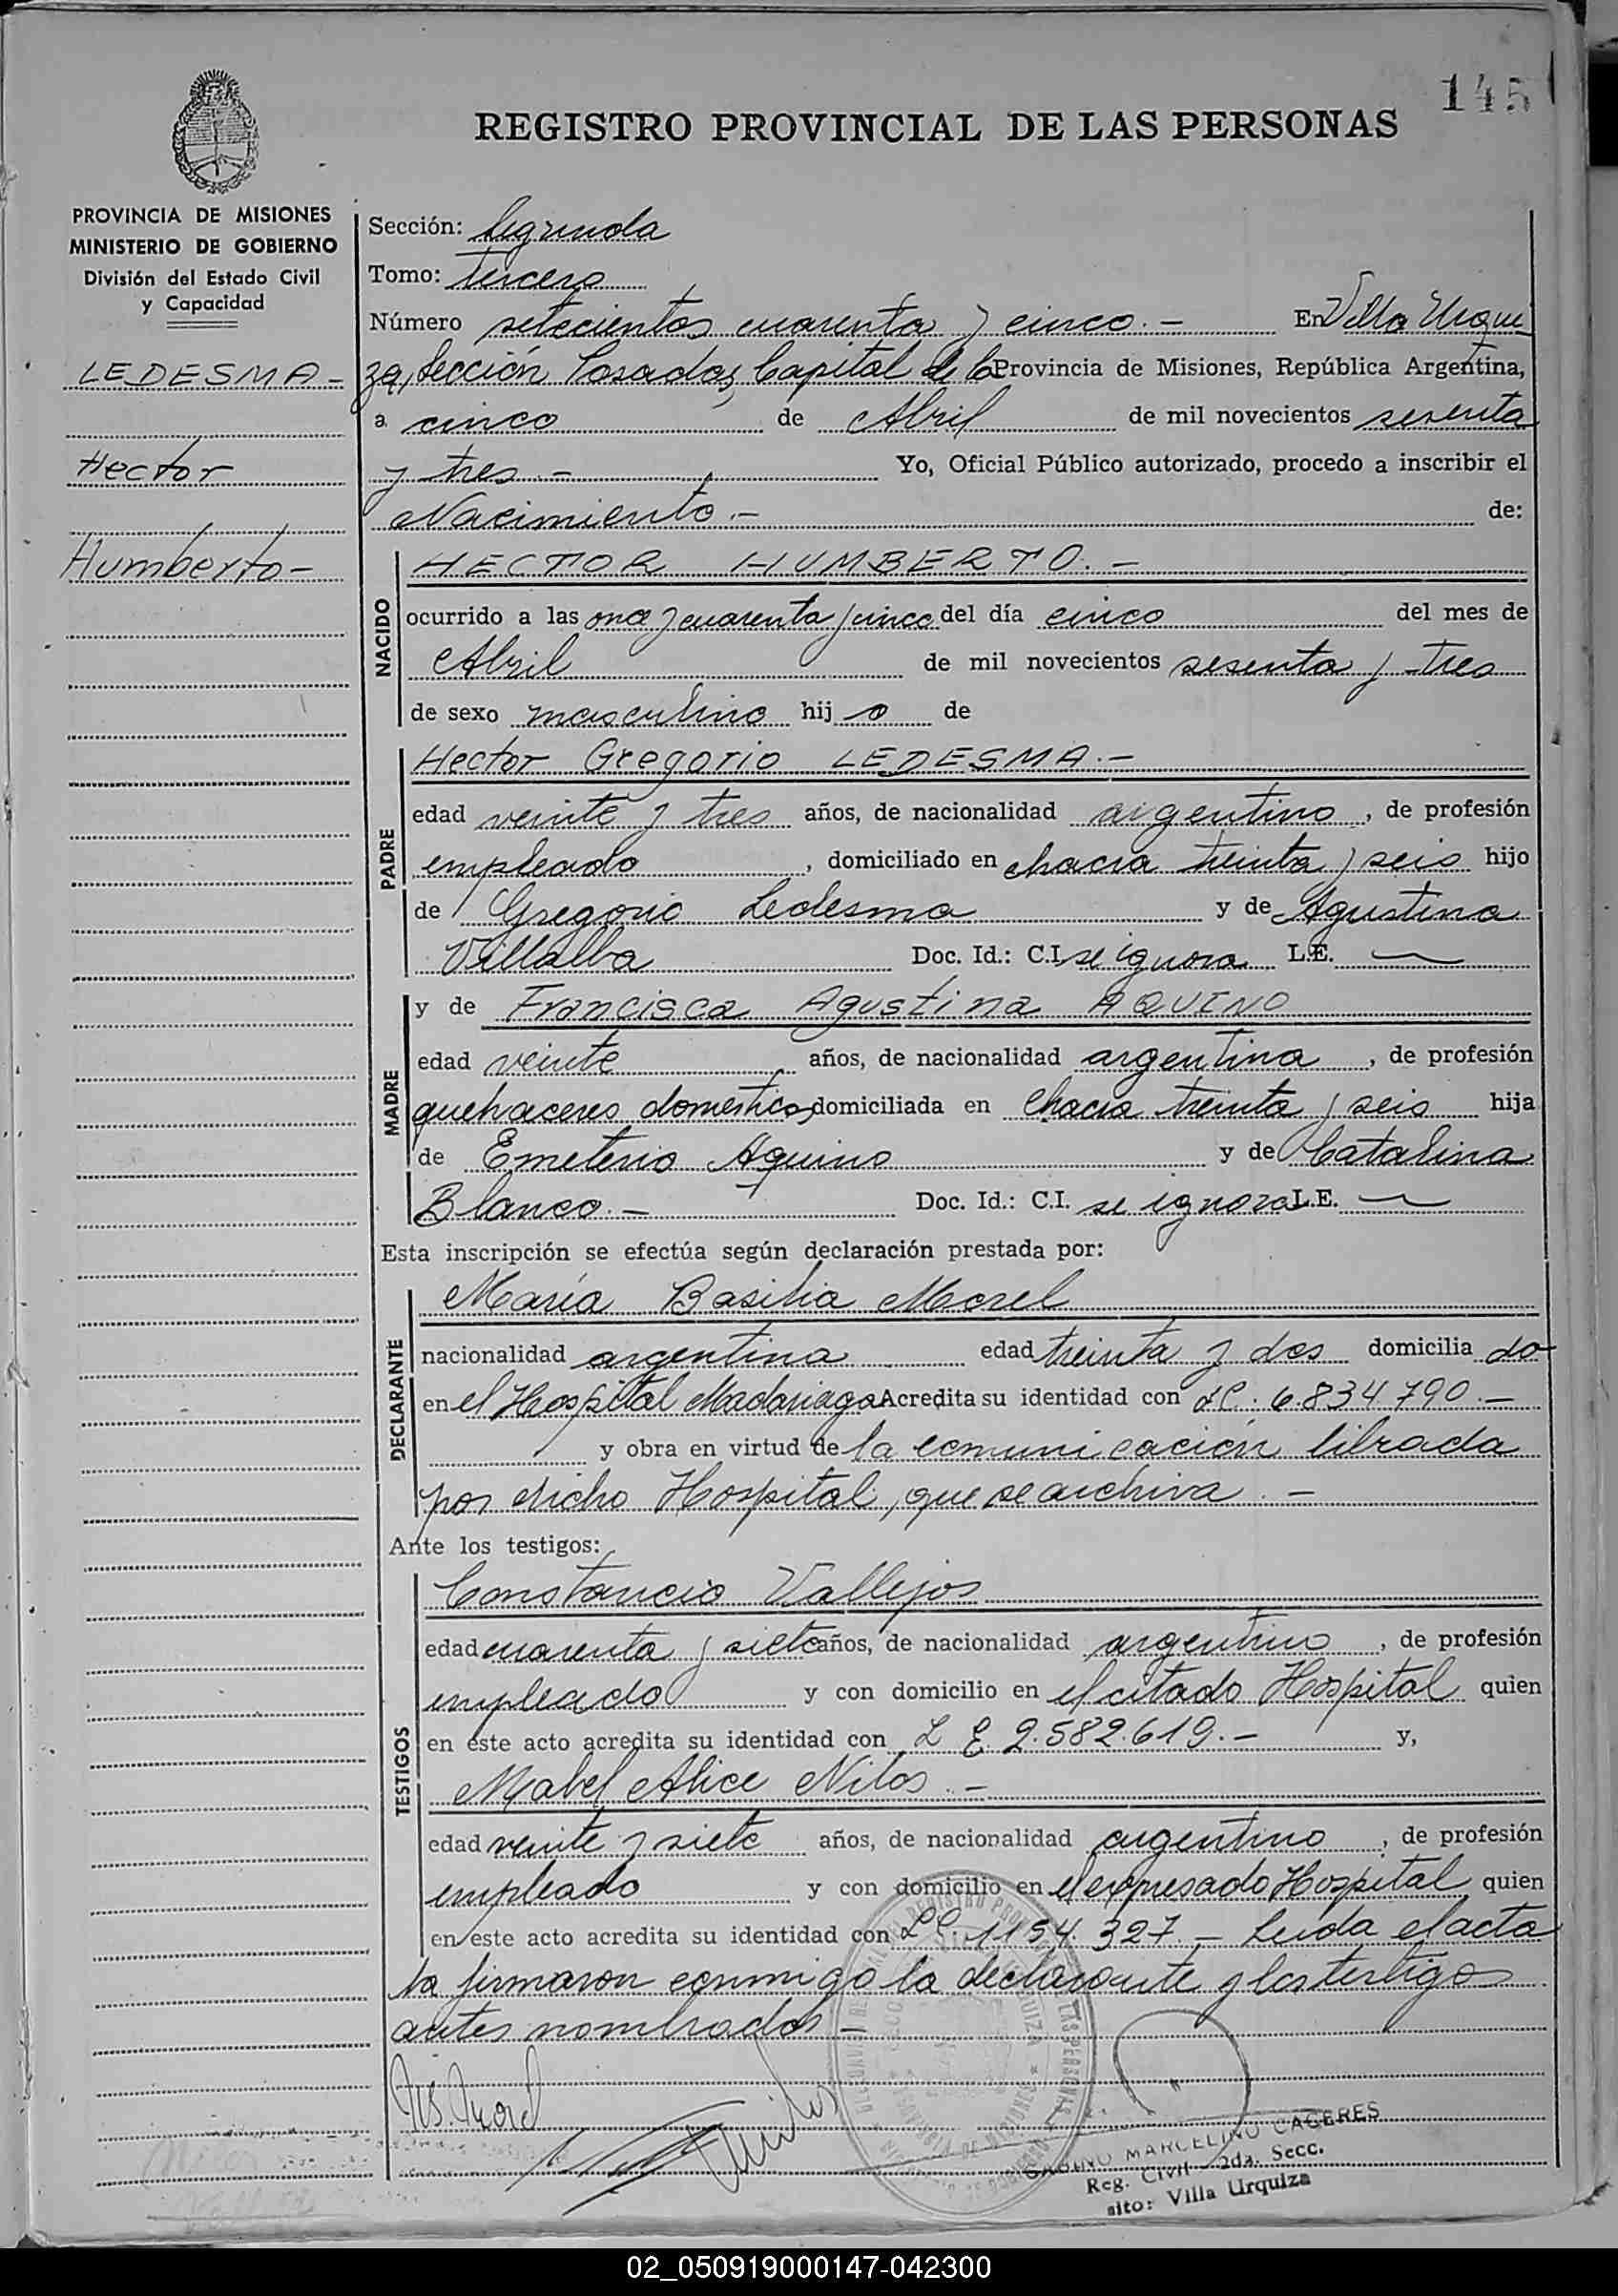 145
REGISTRO PROVINCIAL DE LAS PERSONAS
PROVINCIA DE MISIONES
MINISTERIO DE GOBIERNO
División del Estado Civil
y Capacidad
LEDESMA -
Hector
Humberto -
Sección: Segunda
Tomo: Tercero
Número setecientos cuarenta y cinco.- En Villa Urqui
za, Sección Posadas, Capital de la Provincia de Misiones, República Argentina,
a cinco de Abril de mil novecientos sesenta
y tres.- Yo, Oficial Público autorizado, procedo a inscribir el
Nacimiento.- de:
NACIDO
HECTOR HUMBERTO.-
ocurrido a las once y cuarenta y cinco del día cinco del mes de
Abril de mil novecientos sesenta y tres
de sexo masculino hij o de
PADRE
Hector Gregorio LEDESMA.-
edad veinte y tres años, de nacionalidad argentino, de profesión
empleado, domiciliado en chacra treinta y seis hijo
de Gregorio Ledesma y de Agustina
Villalba Doc. Id.: C.I. se ignora L.E. —
MADRE
y de Francisca Agustina AQUINO
edad veinte años, de nacionalidad argentina, de profesión
quehaceres domésticos domiciliada en Chacra treinta y seis hija
de Emeterio Aquino y de Catalina
Blanco.- Doc. Id.: C.I. se ignora L.E. —
Esta inscripción se efectúa según declaración prestada por:
DECLARANTE
María Basilia Morel
nacionalidad argentina edad treinta y dos domicilia do
en el Hospital Madariaga Acredita su identidad con LC. 6.834.790.-
y obra en virtud de la comunicación librada
por dicho Hospital, que se archiva.-
Ante los testigos:
TESTIGOS
Constancio Vallejos
edad cuarenta y siete años, de nacionalidad argentino, de profesión
empleado y con domicilio en el citado Hospital quien
en este acto acredita su identidad con L E 2.582.619.- y,
Mabel Alice Nilos.-
edad veinte y siete años, de nacionalidad argentino, de profesión
empleado y con domicilio en el expresado Hospital quien
en este acto acredita su identidad con LC. 1154.327.- Leida el acta
la firmaron conmigo la declarante y los testigos
antes nombrados.-
MARCELINO CACERES
Reg. Civil 2da. Secc.
sito: Villa Urquiza
02_050919000147-042300